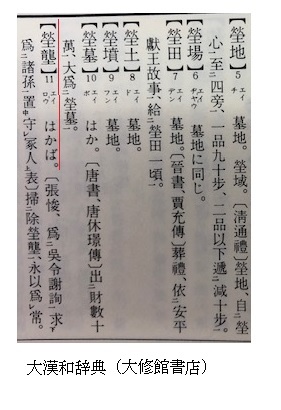 【塋地】5 エイチ 墓地。塋域。〔淸通禮〕塋地、自塋
心至二四旁一、一品九十步、二品以下遞減二十步一。
【塋場】6 エイヂヤウ 墓地に同じ。
【塋田】7 エイデン 墓地。〔晉書、賈充傳〕葬禮、依二安平
獻王故事一、給二塋田一頃一。
【塋土】8 エイド 墓地。
【塋墳】9 エイフン 墓地。
【塋墓】10 エイボ はか。〔唐書、唐休璟傳〕出二財數十
萬一、大爲二塋墓一。
【塋壟】11 エイロウ はかば。〔張悛、爲二吳令謝詢一求レ
爲二諸孫一置中守レ冢人上表〕掃二除塋壟一、永以爲レ常。
大漢和辞典（大修館書店）